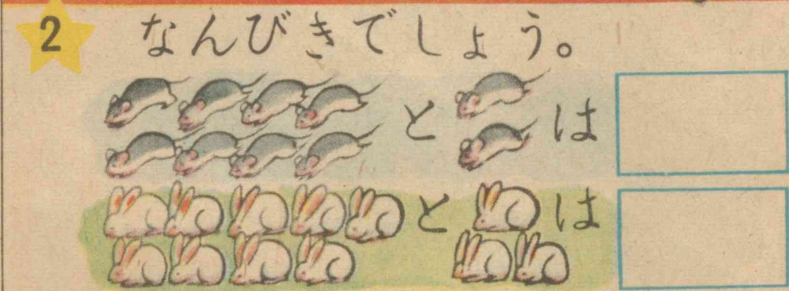 2 なんびきでしょう。
と は
と は